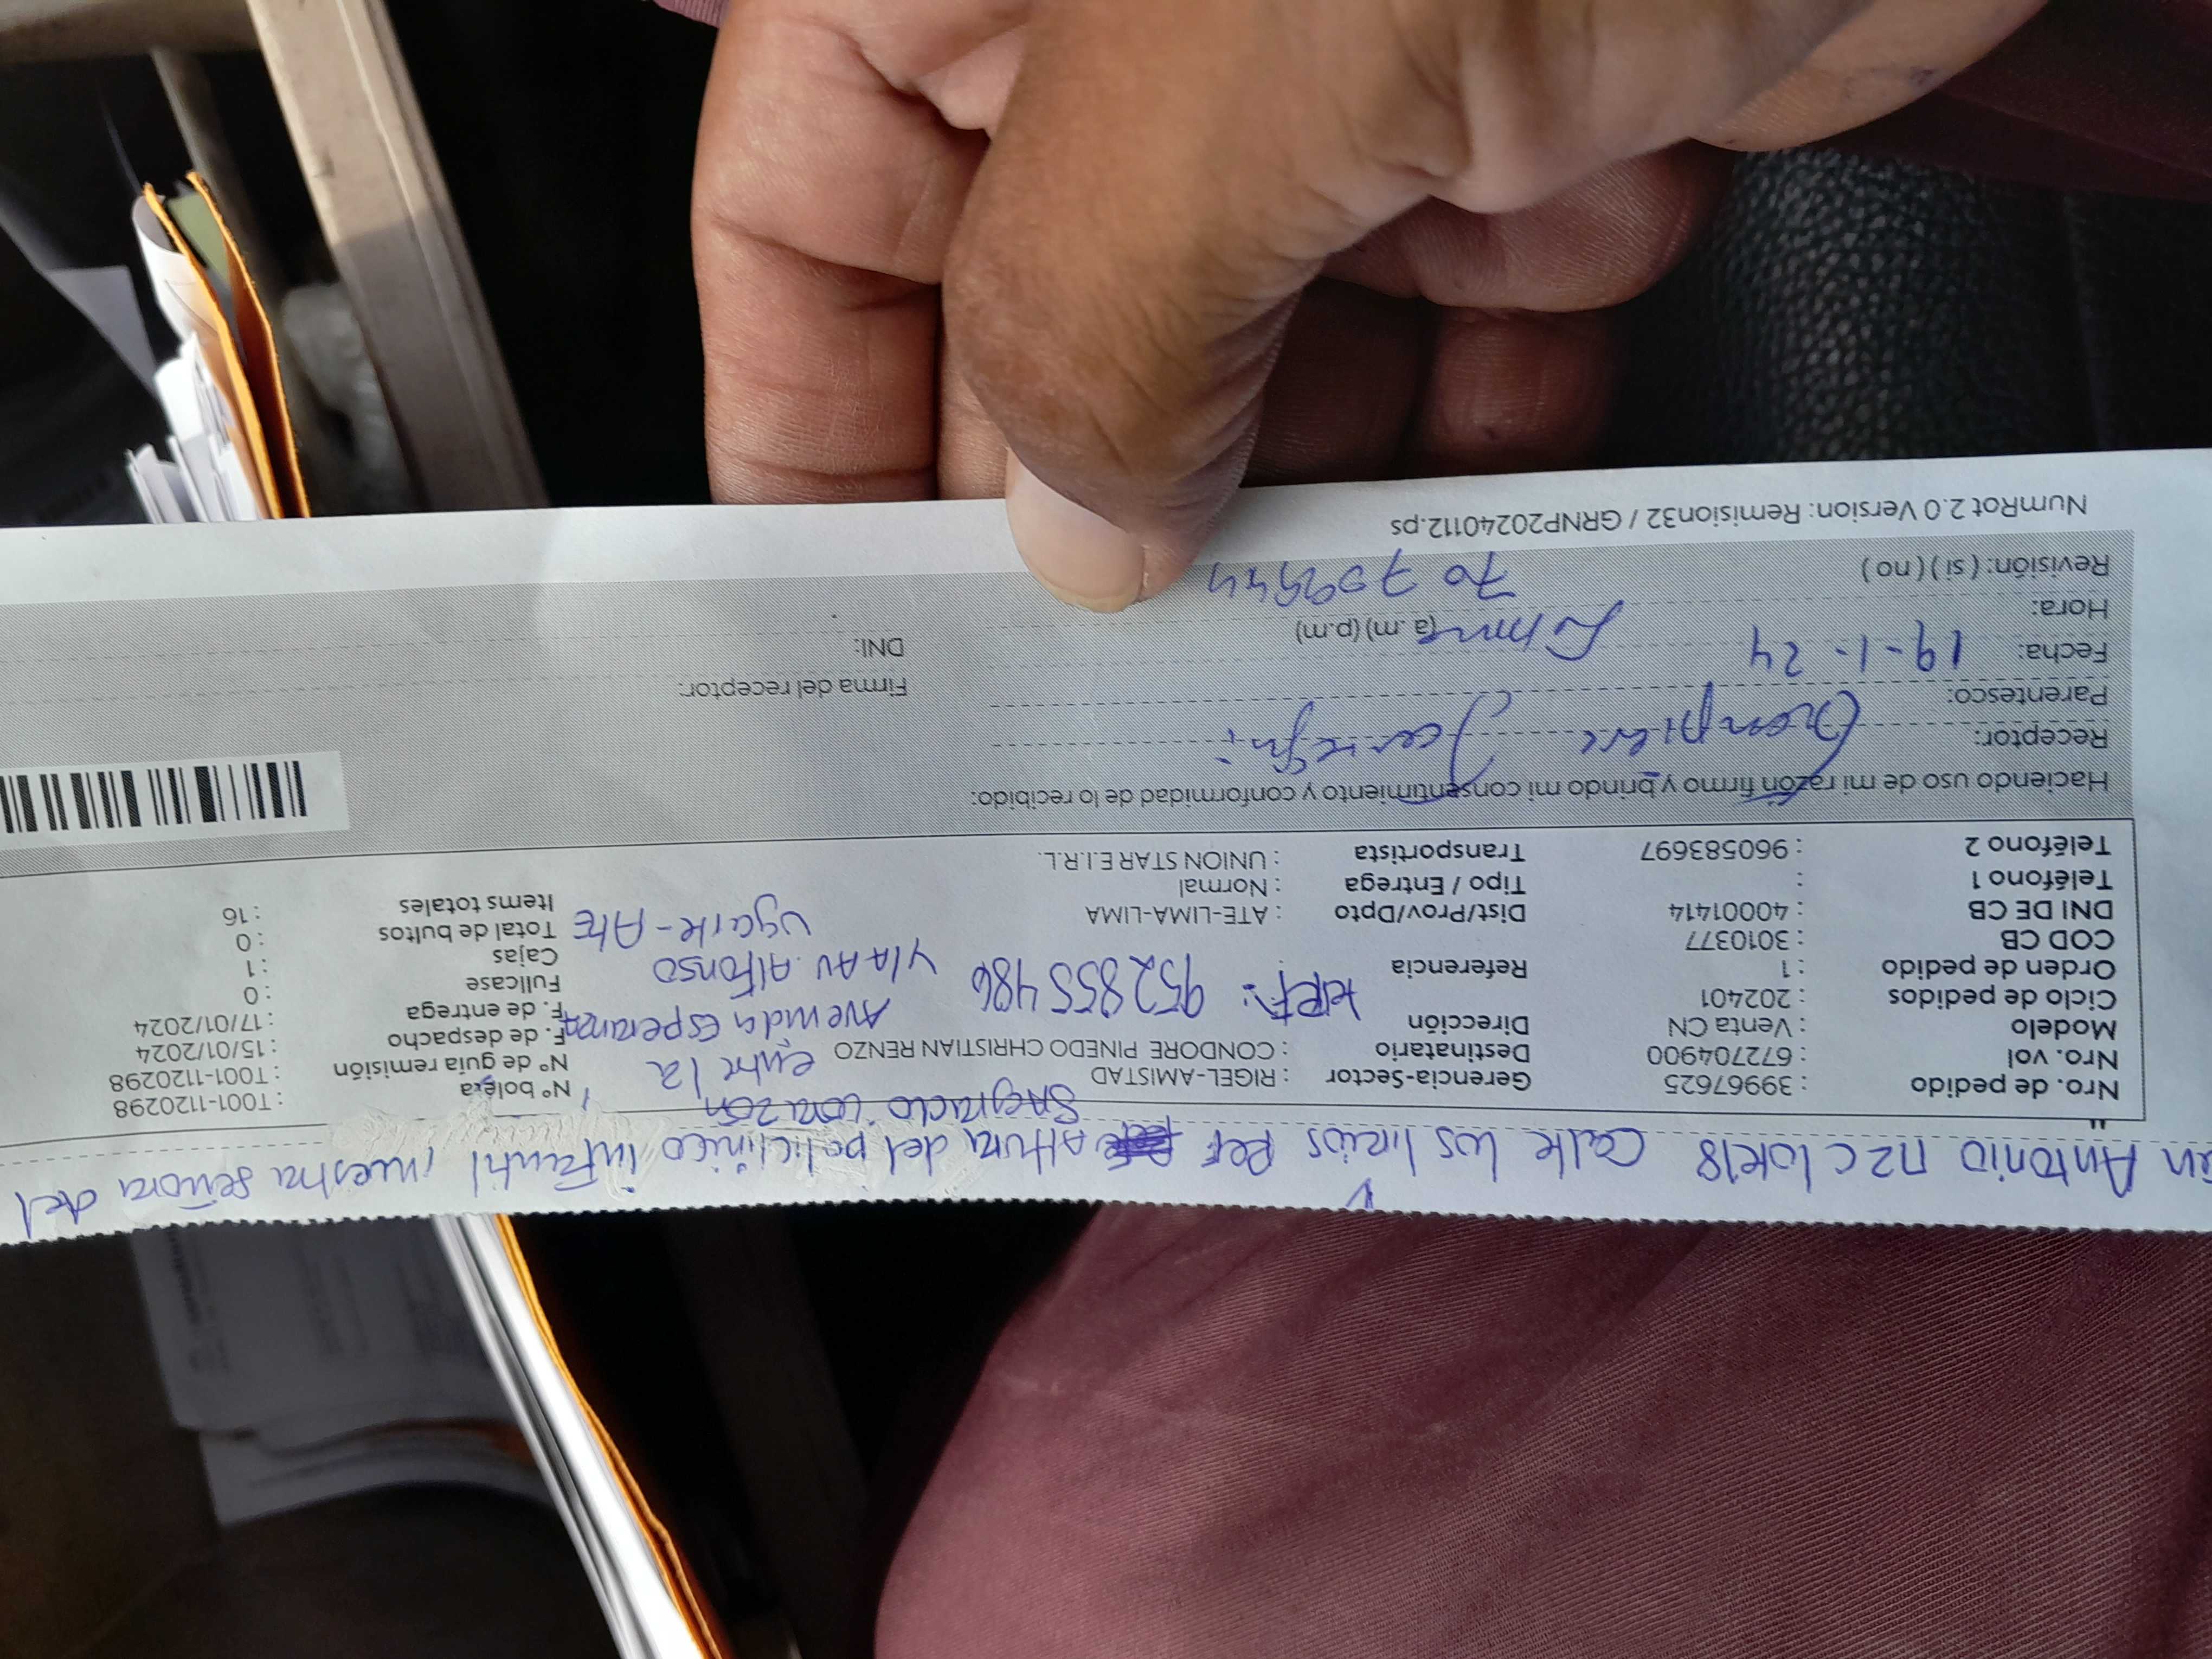 Antonio Mz C lote 18 Calle los lirios Ref Altura del policlínico infantil nuestra señora del
sagrado corazón, entre la
Avenida Esperanza
y la Av. Alfonso
Ugarte - Ate
REF: 952855486
Nro. de pedido : 39967625
Nro. vol : 672704900
Modelo : Venta CN
Ciclo de pedidos : 202401
Orden de pedido : 1
COD CB : 3010377
DNI DE CB : 40001414
Teléfono 1 :
Teléfono 2 : 960583697
Gerencia-Sector : RIGEL-AMISTAD
Destinatario : CONDORE PINEDO CHRISTIAN RENZO
Dirección
Referencia
Dist/Prov/Dpto : ATE-LIMA-LIMA
Tipo / Entrega : Normal
Transportista : UNION STAR E.I.R.L.
N° boleta : T001-1120298
N° de guía remisión : T001-1120298
F. de despacho : 15/01/2024
F. de entrega : 17/01/2024
Fullcase : 0
Cajas : 1
Total de bultos : 0
Items totales : 16
Haciendo uso de mi razón firmo y brindo mi consentimiento y conformidad de lo recibido:
Receptor:
Parentesco:
Fecha: 19-1-24
Hora: (a.m) (p.m)
Revisión: ( si ) ( no )
Firma del receptor:
DNI:
NumRot 2.0 Version: Remision32 / GRNP20240112.ps